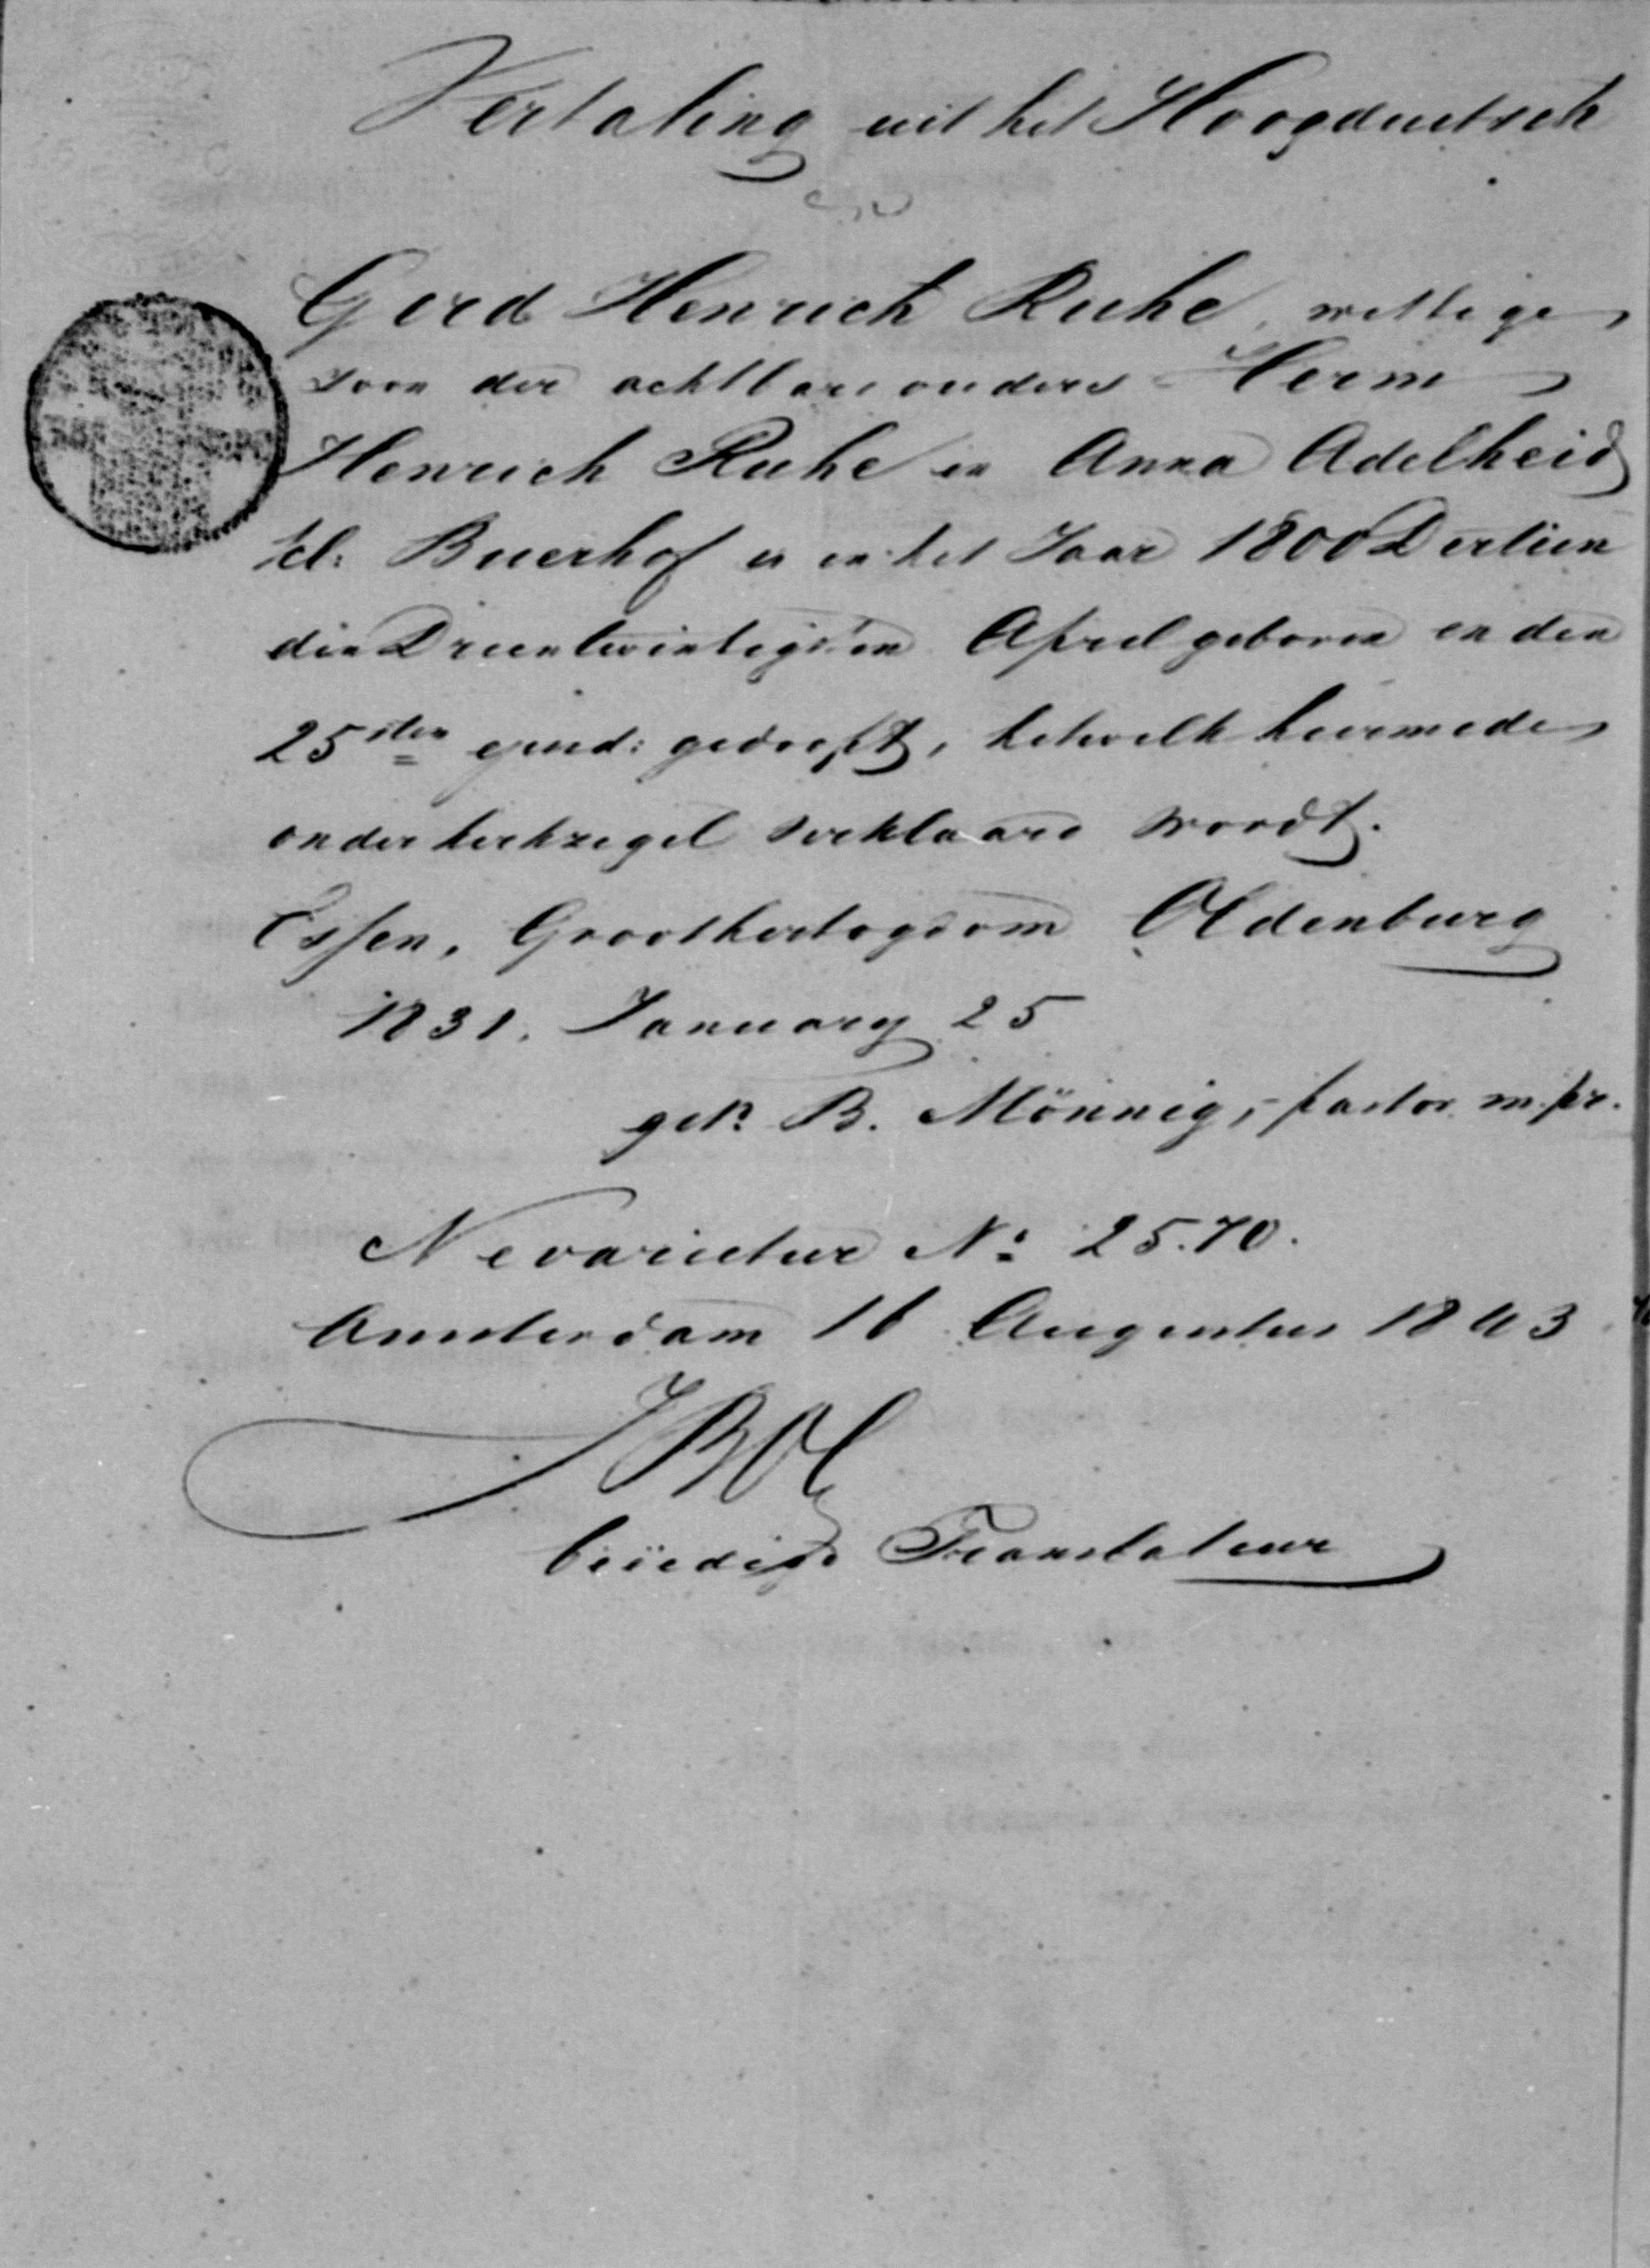 Vertaling uit het Hoogduitsch
Gerd Henrich Ruhe, wettige
Zoon der achtbare ouders Herm
Henrich Ruhe en Anna Adelheid
Buerhof is in het Jaar 1800 Dertien
den Drieentwintigsten April geboren en den
25sten ejusd: gedoopt, hetwelk hiermede
onder kerkzegel verklaard wordt.
Essen, Groothertogdom Oldenburg
1831. January 25
get: B. Mönnig, pastor m.pr.
Nevarietur No: 25.70.
Amsterdam 16 Augustus 1843
beëedigd Translateur